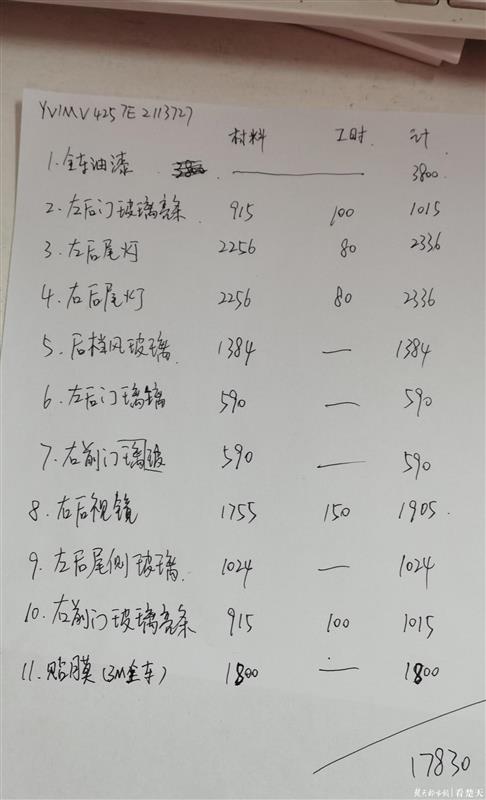 YV1MV4257E2113727
材料 工时 计
1.全车油漆 3800 3800.
2.左后门玻璃亮条 915 100 1015
3.左后尾灯 2256 80 2336
4.右后尾灯 2256 80 2336
5.后档风玻璃 1384 — 1384
6.左后门璃 590 — 590
7.右前门璃玻 590 — 590
8.右后视镜 1755 150 1905.
9.左后尾侧玻璃 1024 — 1024
10.右前门玻璃亮条 915 100 1015
11.贴膜(3M全车) 1800 — 1800
17830
楚天都市报 | 看楚天